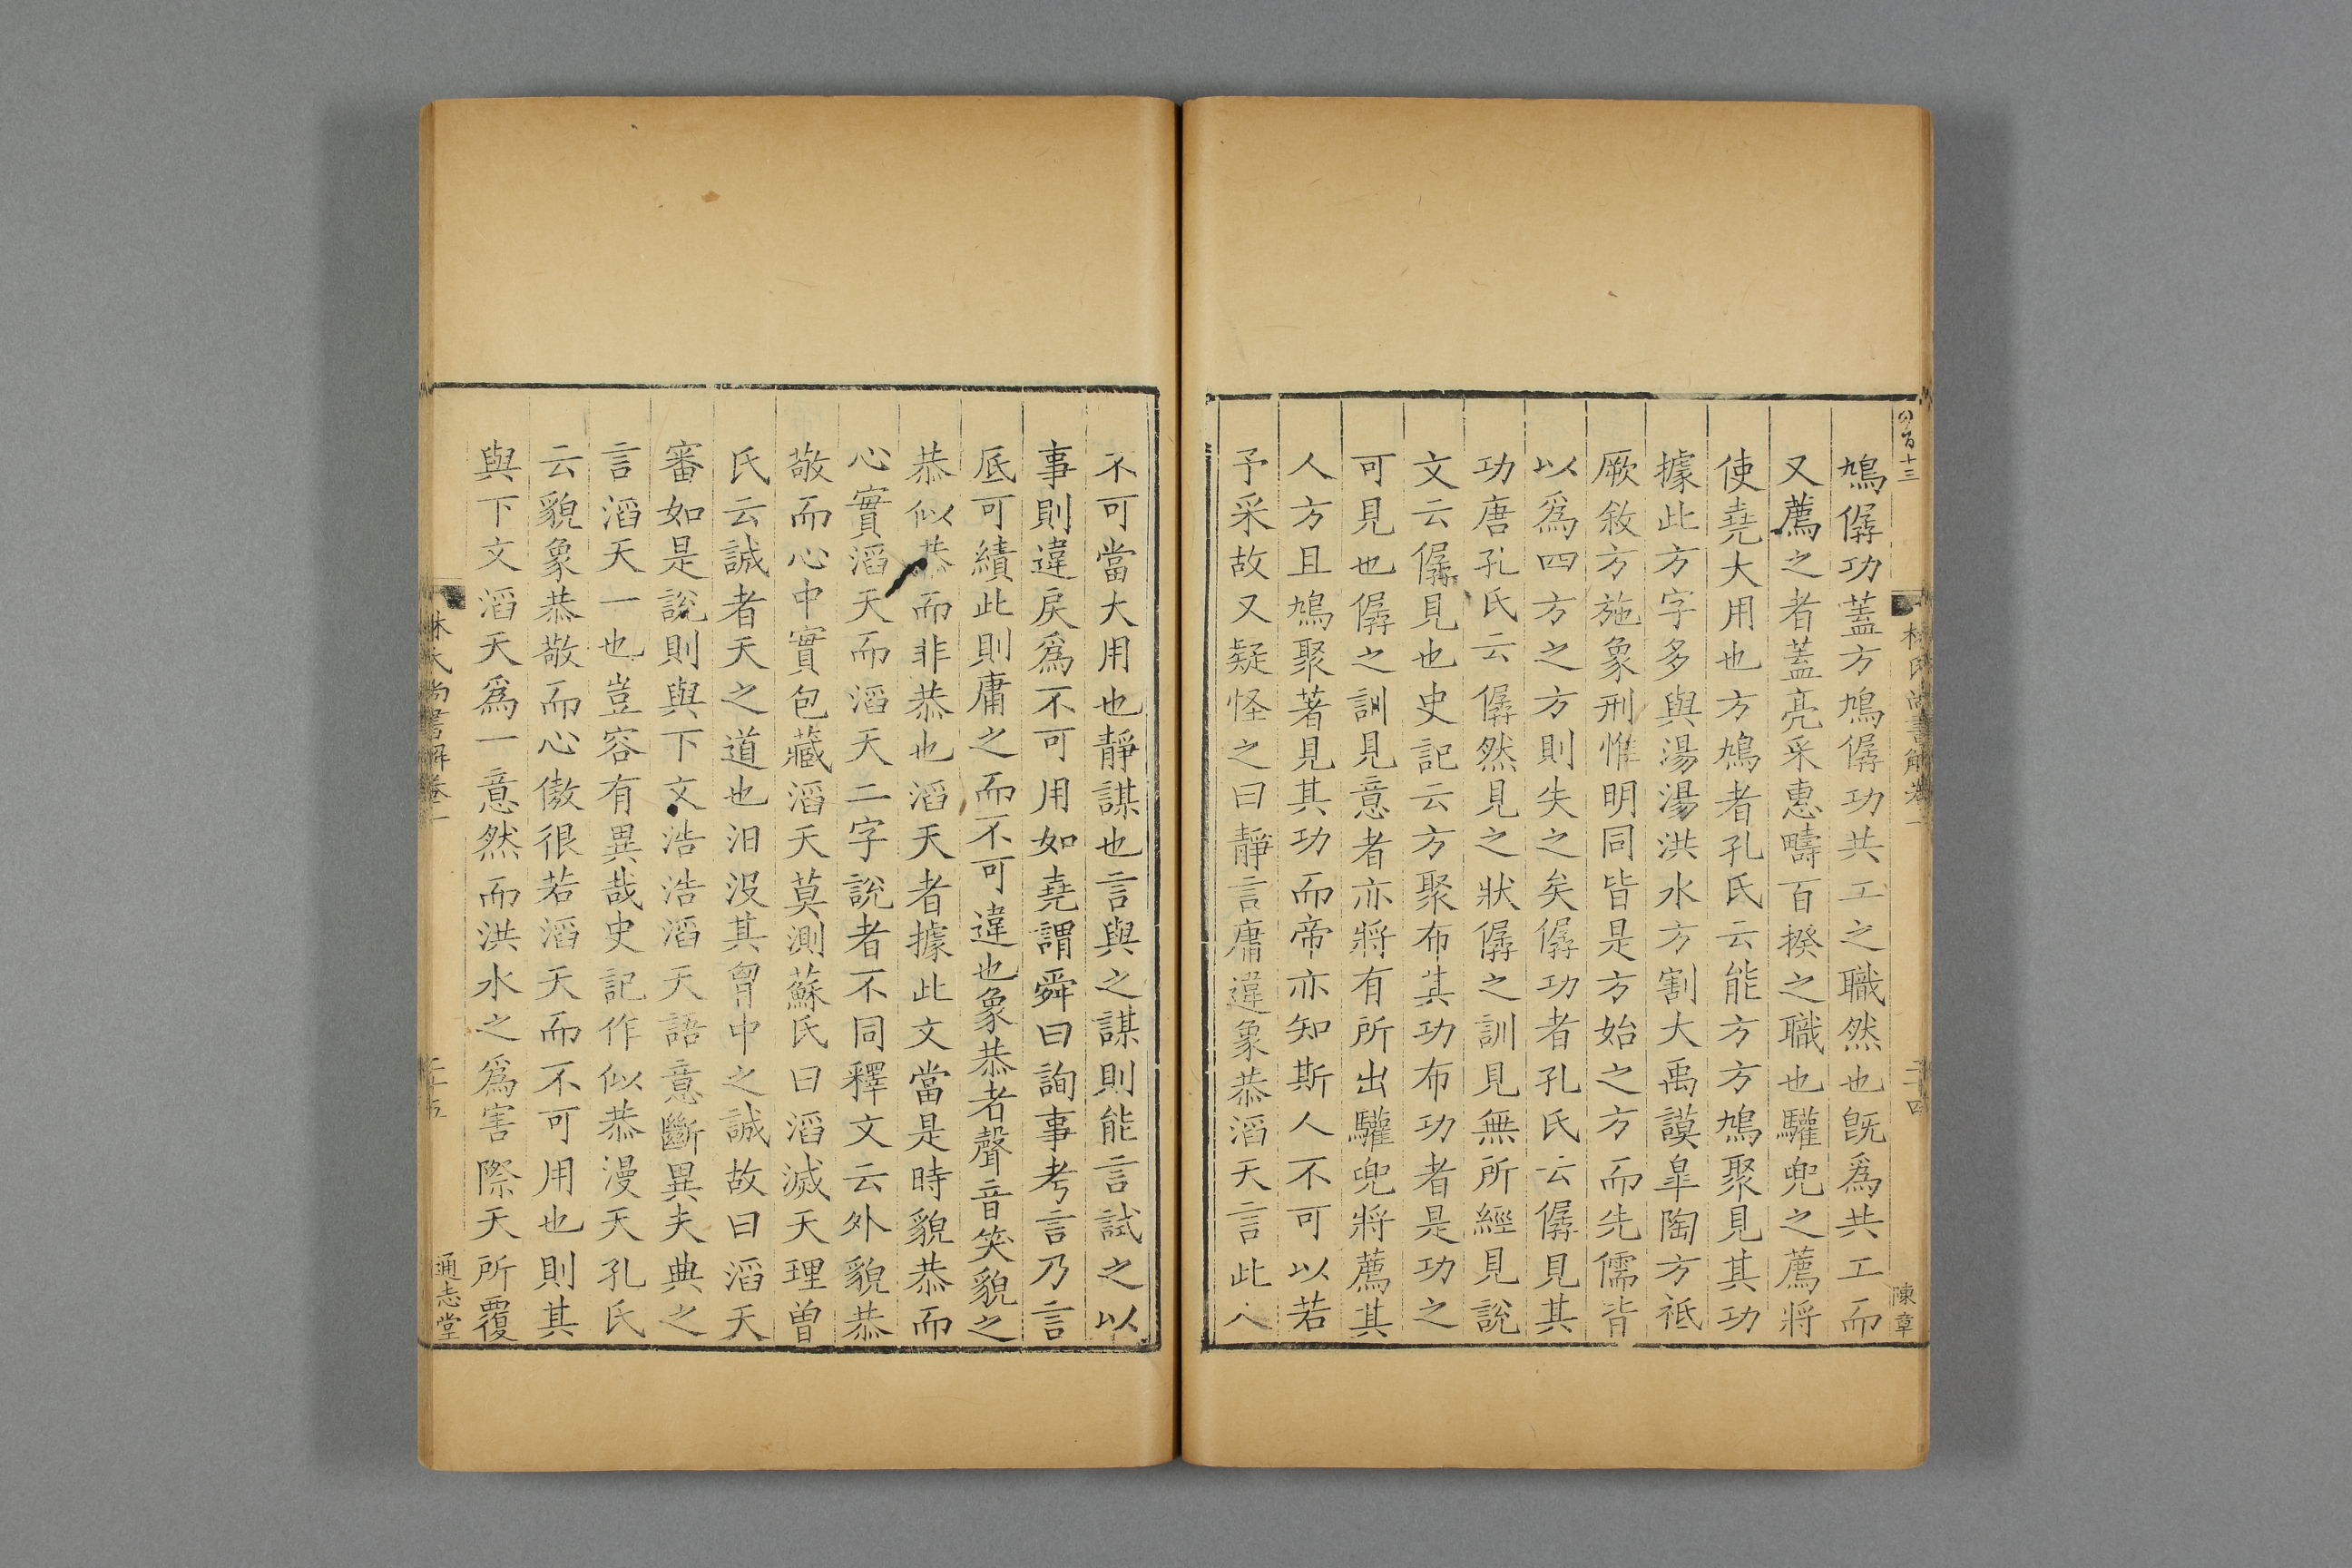 鳩僝功蓋方鳩僝功共工之職然也旣爲共工而
又薦之者蓋亮采惠疇百揆之職也驩兜之薦將
使堯大用也方鳩者孔氏云能方方鳩聚見其功
據此方字多與湯湯洪水方割大禹謨臯陶方祗
厥敘方施象刑惟明同皆是方始之方而先儒皆
以爲四方之方則失之矣僝功者孔氏云僝見其
功唐孔氏云僝然見之狀僝之訓見無所經見說
文云僝見也史記云方聚布其功布功者是功之
可見也僝之訓見意者亦將有所出驩兜將薦其
人方且鳩聚著見其功而帝亦知斯人不可以若
予采故又疑怪之曰靜言庸違象恭滔天言此人
林氏尚書解卷一
二十四
陳章
不可當大用也靜謀也言與之謀則能言試之以
事則違戾爲不可用如堯謂舜曰詢事考言乃言
厎可績此則庸之而不可違也象恭者聲音笑貌之
恭似恭而非恭也滔天者據此文當是時貌恭而
心實滔天而滔天二字說者不同釋文云外貌恭
敬而心中實包藏滔天莫測蘇氏曰滔滅天理曾
氏云誠者天之道也汨沒其胷中之誠故曰滔天
審如是說則與下文浩浩滔天語意斷異夫典之
言滔天一也豈容有異哉史記作似恭漫天孔氏
云貌象恭敬而心傲很若滔天而不可用也則其
與下文滔天爲一意然而洪水之爲害際天所覆
林氏尚書解卷一
二十五
通志堂